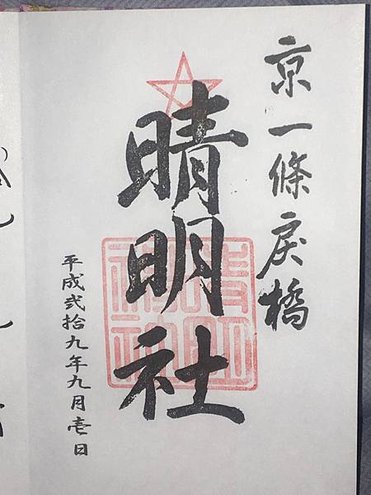 京一條戻橋
晴明社
平成弐拾九年九月壱日